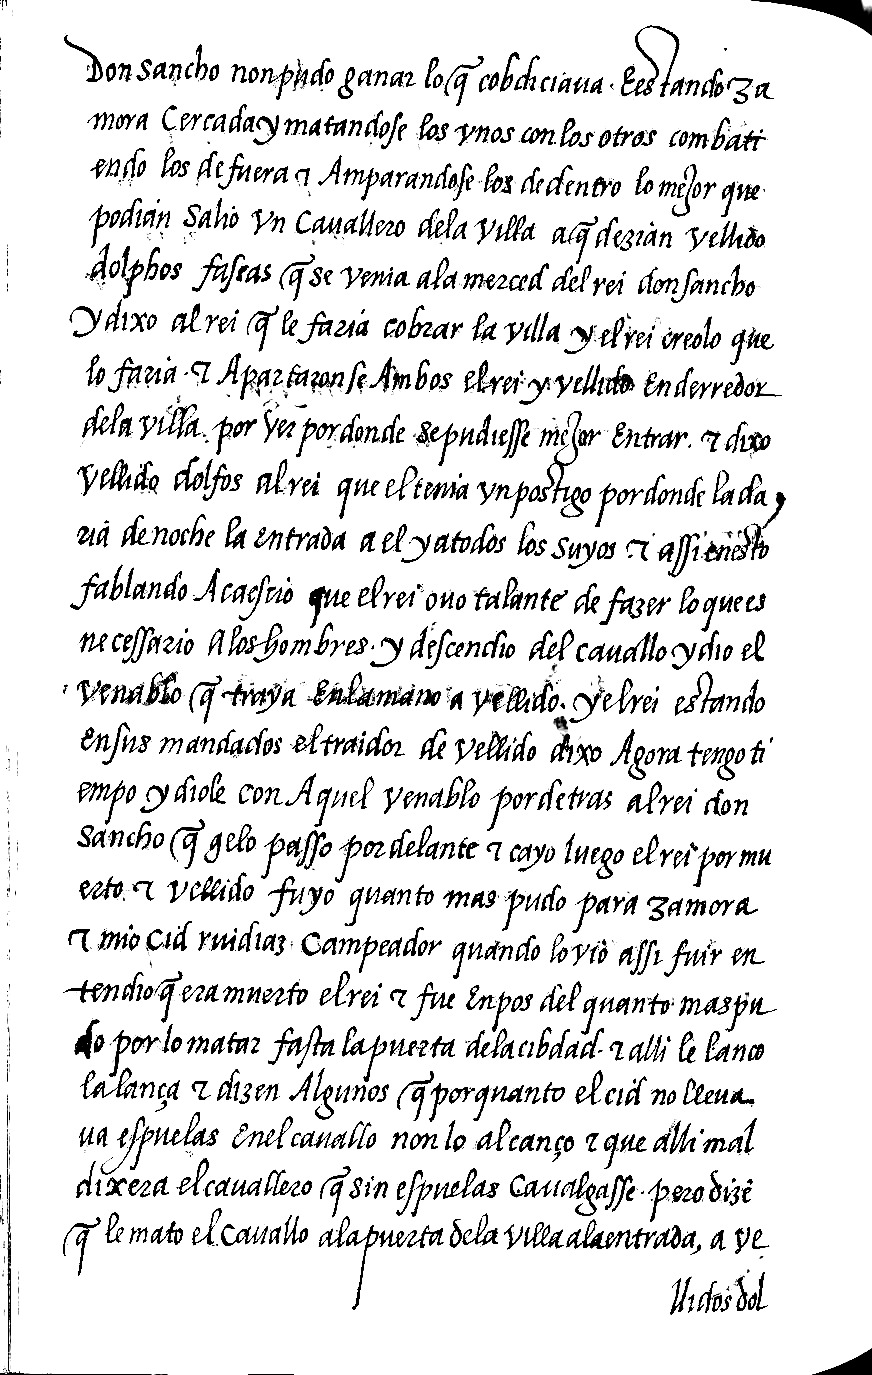 Don Sancho non pudo ganar lo q̃ cobdiciaua. E estando Za
mora Cercada y matandose los vnos con los otros combati
endo los de fuera ⁊ Amparandose los de dentro lo mejor que
podian Salio Vn Cauallero dela villa aq̃ dezian vellido
dolphos faseas q̃ se venia ala merced del rei don sancho
y dixo al rei q̃ le faria cobrar la villa y el rei creolo que
lo faria ⁊ Apartaronse Ambos el rei y vellido En derredor
dela villa por Ver por donde se pudiesse mejor Entrar. ⁊ dixo
Vellido dolfos al rei que el tenia vn postigo por donde la da
ria de noche la Entrada a el y a todos los suyos ⁊ assi enesto
fablando Acaescio que el rei ouo talante de fazer lo que es
necessario A los hombres. y descendio del cauallo y dio el
Venablo q̃ traya En la mano a vellido. y el rei estando
En sus mandados el traidor de vellido dixo Agora tengo ti
empo y diole con Aquel venablo por detras al rei don
Sancho q̃ gelo passo por delante ⁊ cayo luego el rei por mu
erto. ⁊ Vellido fuyo quanto mas pudo para Zamora
⁊ mio Cid ruidiaz Campeador quando lo vio assi fuir en
tendio q̃ era muerto el rei ⁊ fue Enpos del quanto mas pu
do por lo matar fasta la puerta dela cibdad. ⁊ alli le lanco
la lança ⁊ dizen Algunos q̃ por quanto el cid no lleua
ua espuelas Enel cauallo non lo alcanço ⁊ que alli mal
dixera el cauallero q̃ sin espuelas Caualgasse. pero dizẽ
q̃ le mato el Cauallo ala puerta dela villa ala entrada, a ve
llidos dol